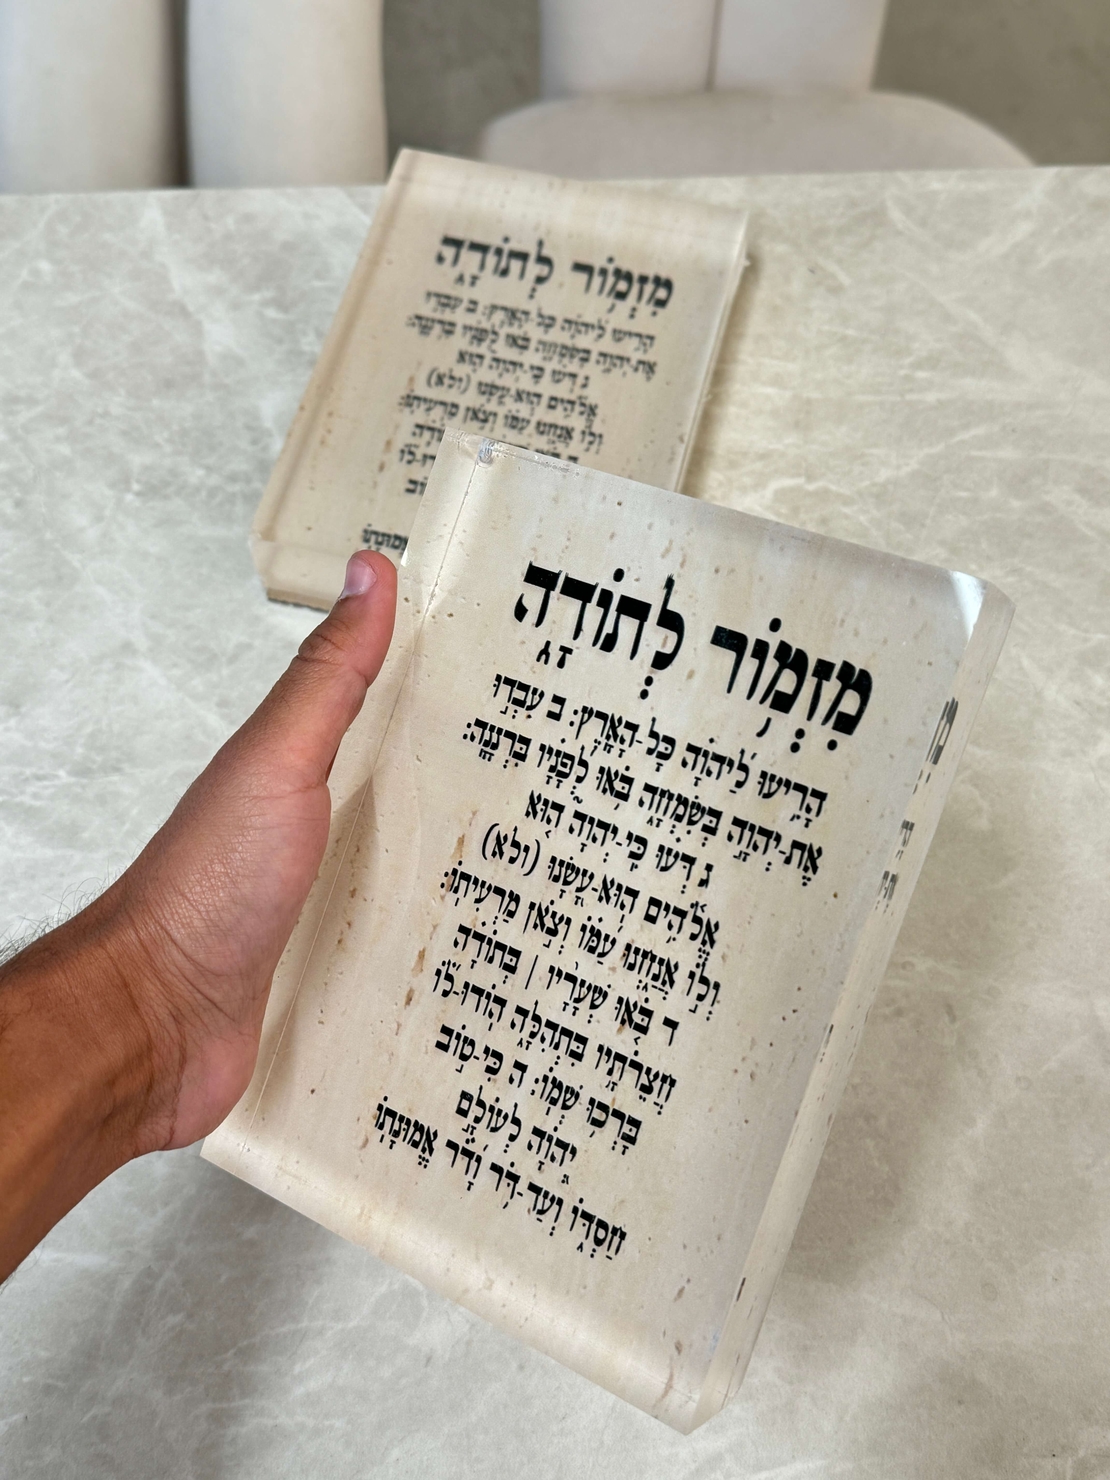 מִזְמ֥וֹר לְתוֹדָ֑ה
הָרִ֥יעוּ לַ֝יהוָ֗ה כָּל-הָאָֽרֶץ: ב עִבְד֣וּ
אֶת-יְהוָ֣ה בְּשִׂמְחָ֑ה בֹּ֥אוּ לְ֝פָנָ֗יו בִּרְנָנָֽה:
ג דְּע֗וּ כִּֽי-יְהוָה֮ ה֤וּא
אֱלֹ֫הִ֥ים הֽוּא-עָ֭שָׂנוּ (ולא)
וְל֣וֹ אֲנַ֑חְנוּ עַ֝מּ֗וֹ וְצֹ֣אן מַרְעִיתֽוֹ:
מִזְמ֥וֹר לְתוֹדָ֑ה
הָרִ֥יעוּ לַ֝יהוָ֗ה כָּל-הָאָֽרֶץ: ב עִבְד֣וּ
אֶת-יְהוָ֣ה בְּשִׂמְחָ֑ה בֹּ֥אוּ לְ֝פָנָ֗יו בִּרְנָנָֽה:
ג דְּע֗וּ כִּֽי-יְהוָה֮ ה֤וּא
אֱלֹ֫הִ֥ים הֽוּא-עָ֭שָׂנוּ (ולא)
וְל֣וֹ אֲנַ֑חְנוּ עַ֝מּ֗וֹ וְצֹ֣אן מַרְעִיתֽוֹ:
ד בֹּ֤אוּ שְׁעָרָ֨יו | בְּתוֹדָ֗ה
חֲצֵרֹתָ֥יו בִּתְהִלָּ֑ה הֽוֹדוּ-ל֝֗וֹ
בָּרְכ֥וּ שְׁמֽוֹ: ה כִּי-ט֣וֹב
יְ֭הוָה לְעוֹלָ֣ם
חַסְדּ֑וֹ וְעַד-דֹּ֥ר וָ֝דֹ֗ר אֱמוּנָתֽוֹ